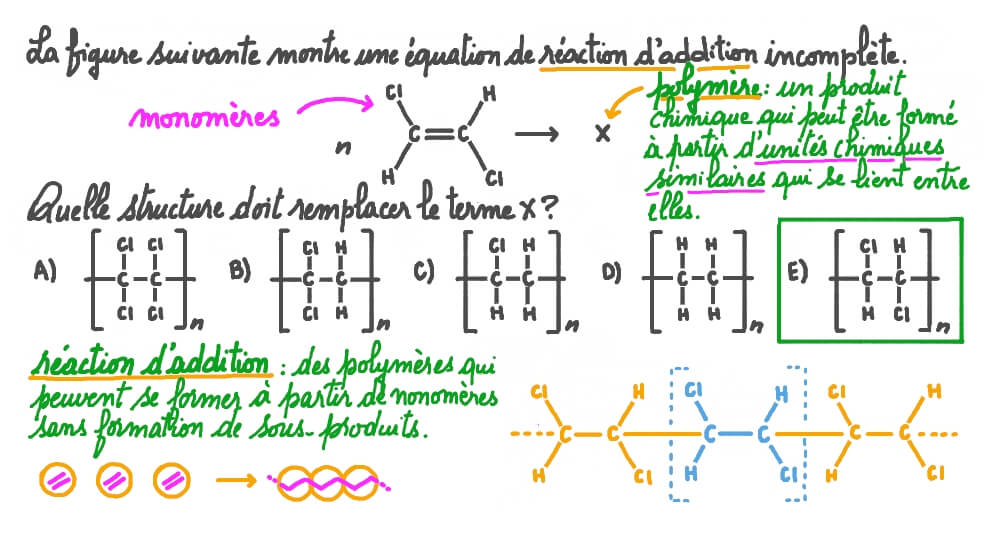 La figure suivante montre une équation de réaction d'addition incomplète.
monomères
n
Cl H
C=C
H Cl
→ x
polymère : un produit
chimique qui peut être formé
à partir d'unités chimiques
similaires qui se lient entre
elles.
Quelle structure doit remplacer le terme x ?
A) B) C) D) E)
Cl Cl Cl H Cl H H H Cl H
C-C C-C C-C C-C C-C
Cl Cl Cl H H H H H H Cl
n n n n n
réaction d'addition : des polymères qui
peuvent se former à partir de nonomères
sans formation de sous-produits.
Cl H Cl H Cl H
C-C C-C C-C
H Cl H Cl H Cl